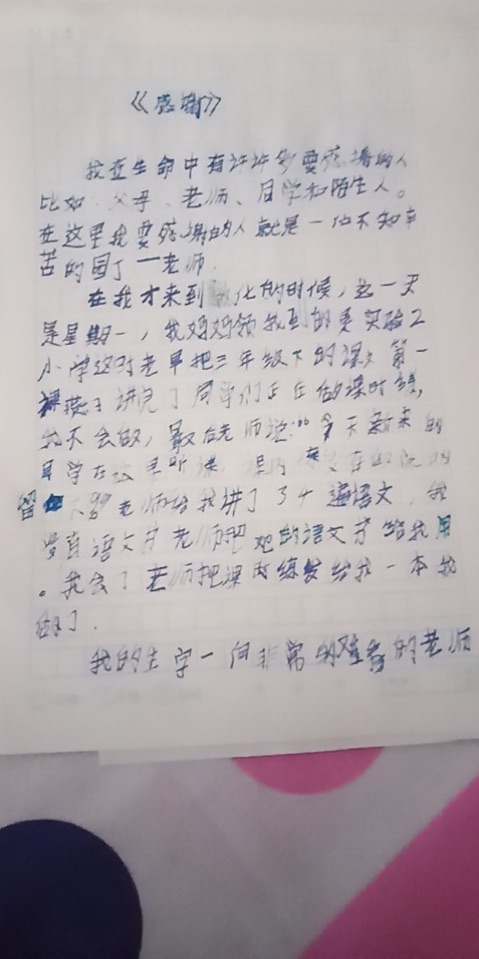 《感谢》
我在生命中有许许多要感谢的人
比如 父母、老师、同学和陌生人。
在这里我要感谢的人就是一位不知辛
苦的园丁一老师.
在我才来到 化的时候,这一天
是星期一,我妈妈领我到 实验2
小学这时老早把三年级下的课文第一
讲完了同学们正在做课时练,
我不会做,最后老师说:"今天新来的
同学在这里听课, 的
留 老师给我讲了3十遍语文,我
没有语文书老师把她的语文书给我用
。我会了老师把课时练发给我一本我
做了.
我的生字一向非常的难看的老师